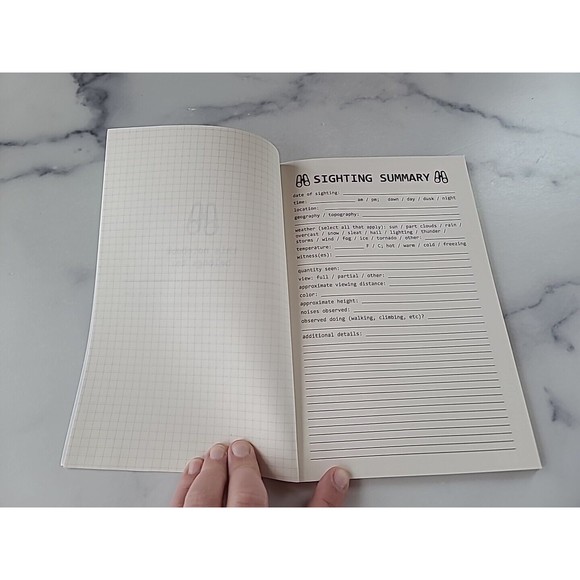 SIGHTING SUMMARY
date of sighting:
time: am / pm; dawn / day / dusk / night
location:
geography / topography:
weather (select all that apply): sun / part clouds / rain /
overcast / snow / sleat / hail / lighting / thunder /
storms / wind / fog / ice / tornado / other:
temperature: F / C; hot / warm / cold / freezing
witness(es):
quantity seen:
view: full / partial / other:
approximate viewing distance:
color:
approximate height:
noises observed:
observed doing (walking, climbing, etc)?
additional details: